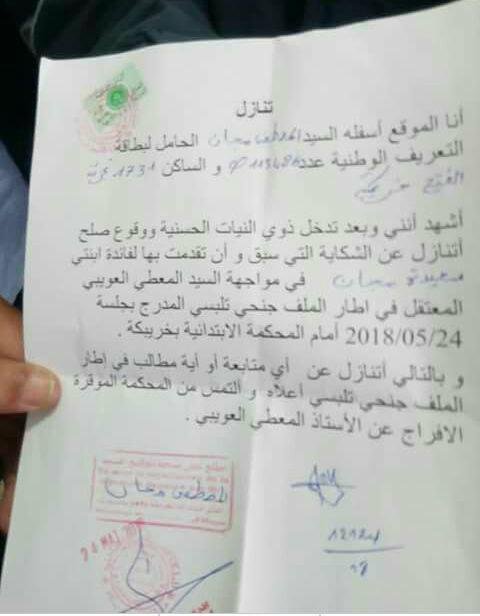 تنازل
أنا الموقع أسفله السيد المصطفى محان الحامل لبطاقة
التعريف الوطنية عدد و الساكن 1731
الفتح خريبكة
أشهد أنني وبعد تدخل ذوي النيات الحسنية ووقوع صلح
أتنازل عن الشكاية التي سبق و أن تقدمت بها لفائدة ابنتي
سعيدة محان في مواجهة السيد المعطي العويبي
المعتقل في اطار الملف جنحي تلبسي المدرج بجلسة
2018/05/24 أمام المحكمة الابتدائية بخريبكة .
و بالتالي أتنازل عن أي متابعة أو أية مطالب في إطار
الملف جنحي تلبسي أعلاه و ألتمس من المحكمة الموقرة
الافراج عن الأستاذ المعطي العويبي .
المصطفى محان
12124
18
24 MAI